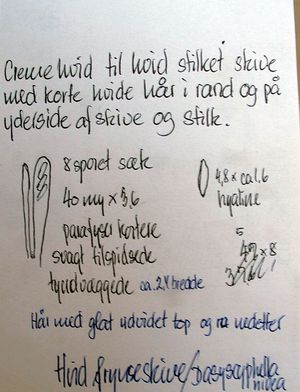 Cremehvid til hvid stilket skive
med korte hvide hår i rand og på
ydelside af skive og stilk.
8 sporet sæk
40 my x 3,6
parafyser kortere
svagt tilspidsede
tyndvæggede ca. 2x bredde
4,8 x ca 1.6
hyaline
5
x 8
Hår med glat udvidet top og ru nedefter
Hvid frynseskive/Dasyscyphella
nivea